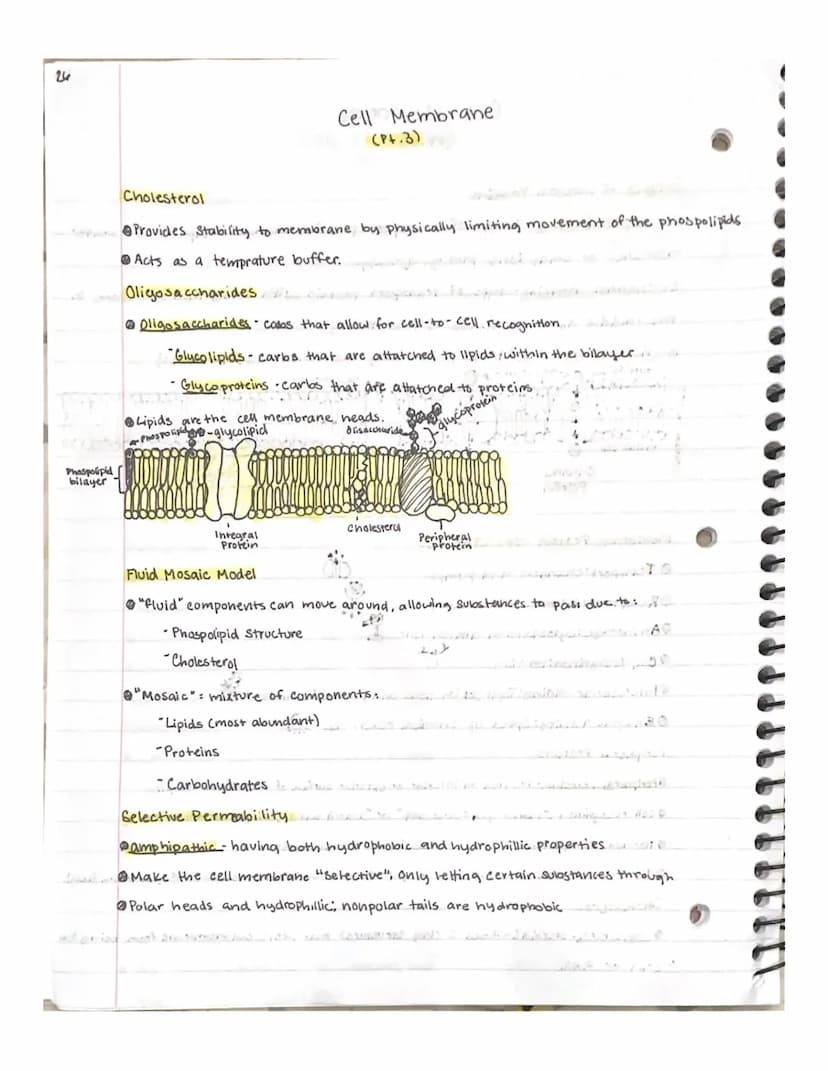 26
Cell Membrane
(Pt.3)
Cholesterol
Provides stability to membrane by physically limiting movement of the phospolipids
Acts as a temprature buffer.
Oligosaccharides
Oligosaccharides - cabs that allow for cell-to-cell recognition
- Glycolipids - carbs that are attatched to lipids within the bilayer
- Glycoproteins - carbs that are attatched to proteins
Lipids are the cell membrane heads.
glycoprotein
Phospolipid
-glycolipid
Phospolipid
bilayer
Integral
Protein
Cholesterol
Peripheral
protein
Fluid Mosaic Model
"fluid" components can move around, allowing substances to pass due to:
- Phaspolipid structure
- Cholesterol
"Mosaic": mixture of components:
- Lipids (most abundant)
- Proteins
- Carbohydrates
Selective Permability
amphipathic - having both hydrophobic and hydrophillic properties
Make the cell membrane "selective", only letting certain substances through
Polar heads and hydrophillic; nonpolar tails are hydrophobic